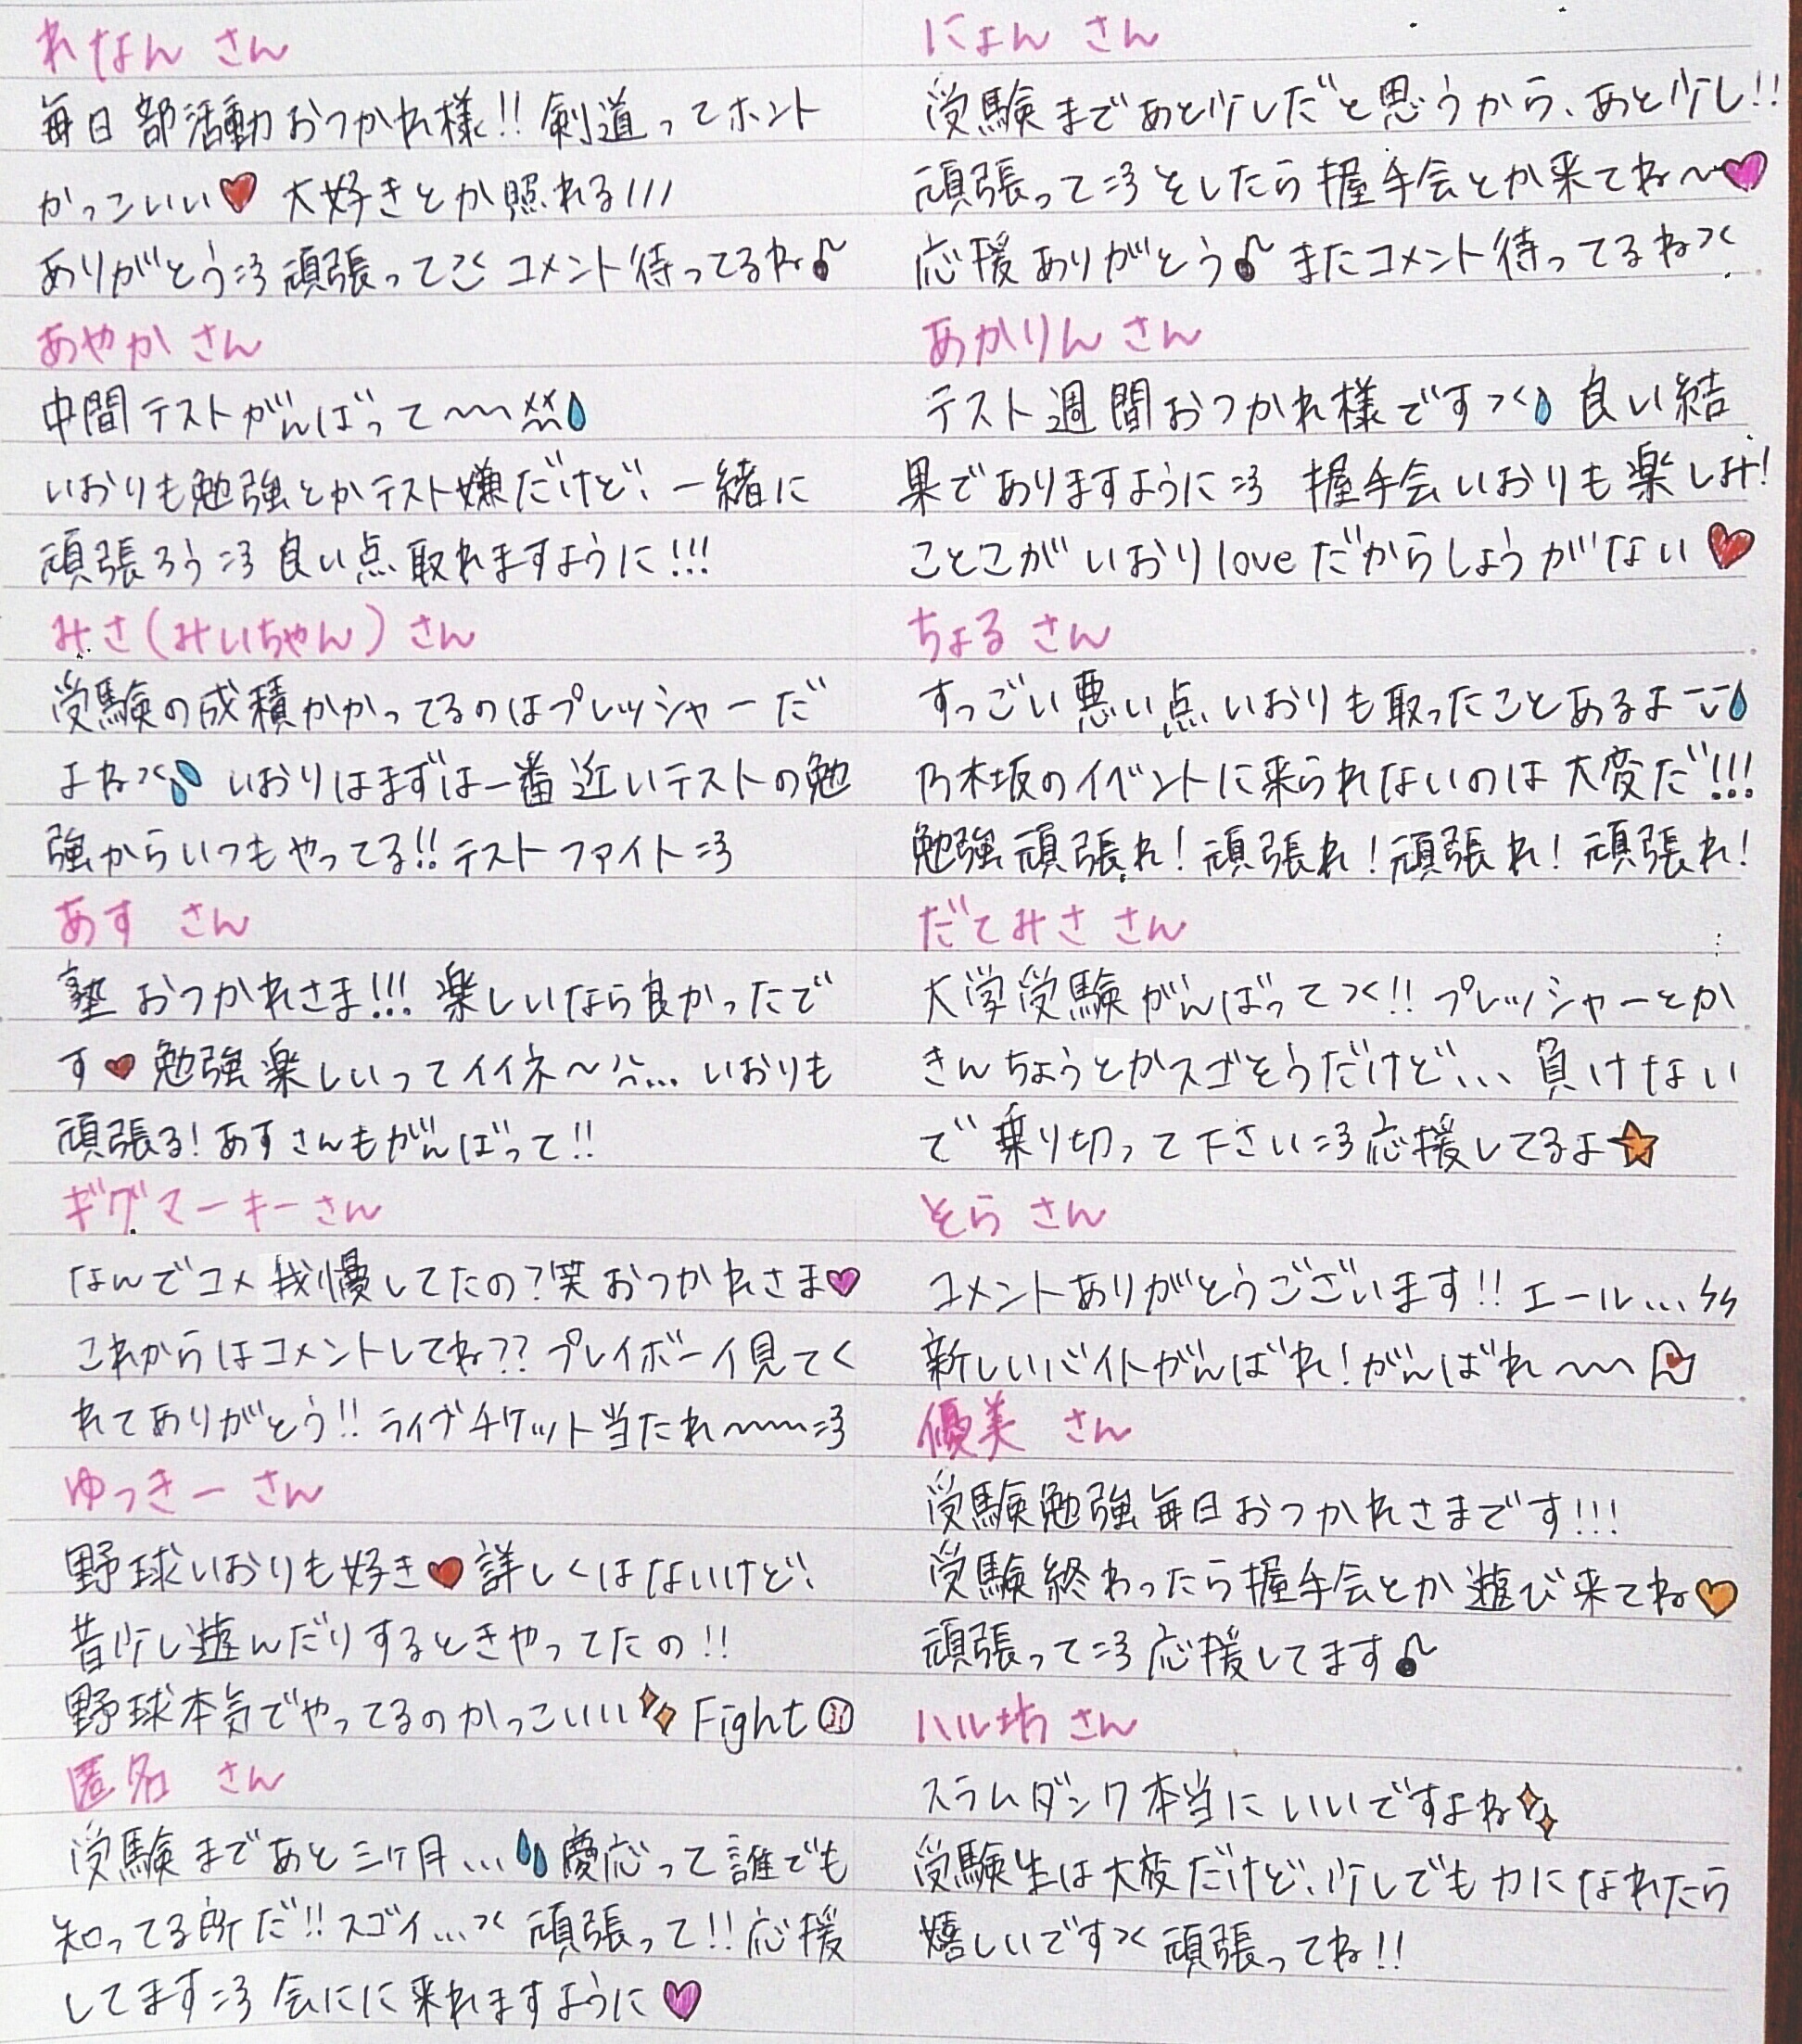 れなん さん
毎日部活動おつかれ様!! 剣道ってホント
かっこいい♥ 大好きとか照れる///
ありがとう=3 頑張って>< コメント待ってるね♪
あやか さん
中間テストがんばって〜〜
いおりも勉強とかテスト嫌だけど、一緒に
頑張ろう=3 良い点取れますように!!!
みさ(みいちゃん)さん
受験の成積かかってるのはプレッシャーだ
よね>< いおりはまずは一番近いテストの勉
強からいつもやってる!! テストファイト=3
あす さん
塾おつかれさま!!! 楽しいなら良かったで
す♥ 勉強楽しいってイイネ〜^^... いおりも
頑張る! あすさんもがんばって!!
ギグマーキーさん
なんでコメ我慢してたの?笑 おつかれさま♥
これからはコメントしてね?? プレイボーイ見てく
れてありがとう!! ライブチケット当たれ〜〜=3
ゆっきー さん
野球いおりも好き♥ 詳しくはないけど、
昔少し遊んだりするときやってたの!!
野球本気でやってるのかっこいい Fight
匿名 さん
受験まであと三ヶ月... 慶応って誰でも
知ってる所だ!! スゴイ...>< 頑張って!! 応援
してます=3 会にに来れますように♥
にょん さん
受験まであと少しだと思うから、あと少し!!
頑張って=3 そしたら握手会とか来てね〜♥
応援ありがとう♪ またコメント待ってるね><
あかりん さん
テスト週間おつかれ様です>< 良い結
果でありますように=3 握手会いおりも楽しみ!
ことこがいおりloveだからしょうがない♥
ちょる さん
すっごい悪い点いおりも取ったことあるよ
乃木坂のイベントに来られないのは大変だ!!!
勉強頑張れ! 頑張れ! 頑張れ! 頑張れ!
だてみさ さん
大学受験がんばって><!! プレッシャーとか
きんちょうとかスゴそうだけど... 負けない
で乗り切って下さい=3 応援してるよ★
そら さん
コメントありがとうございます!! エール...
新しいバイトがんばれ! がんばれ〜〜
優美 さん
受験勉強毎日おつかれさまです!!!
受験終わったら握手会とか遊び来てね♥
頑張って=3 応援してます♪
ハル坊 さん
スラムダンク本当にいいですよね
受験生は大変だけど、少しでも力になれたら
嬉しいです>< 頑張ってね!!